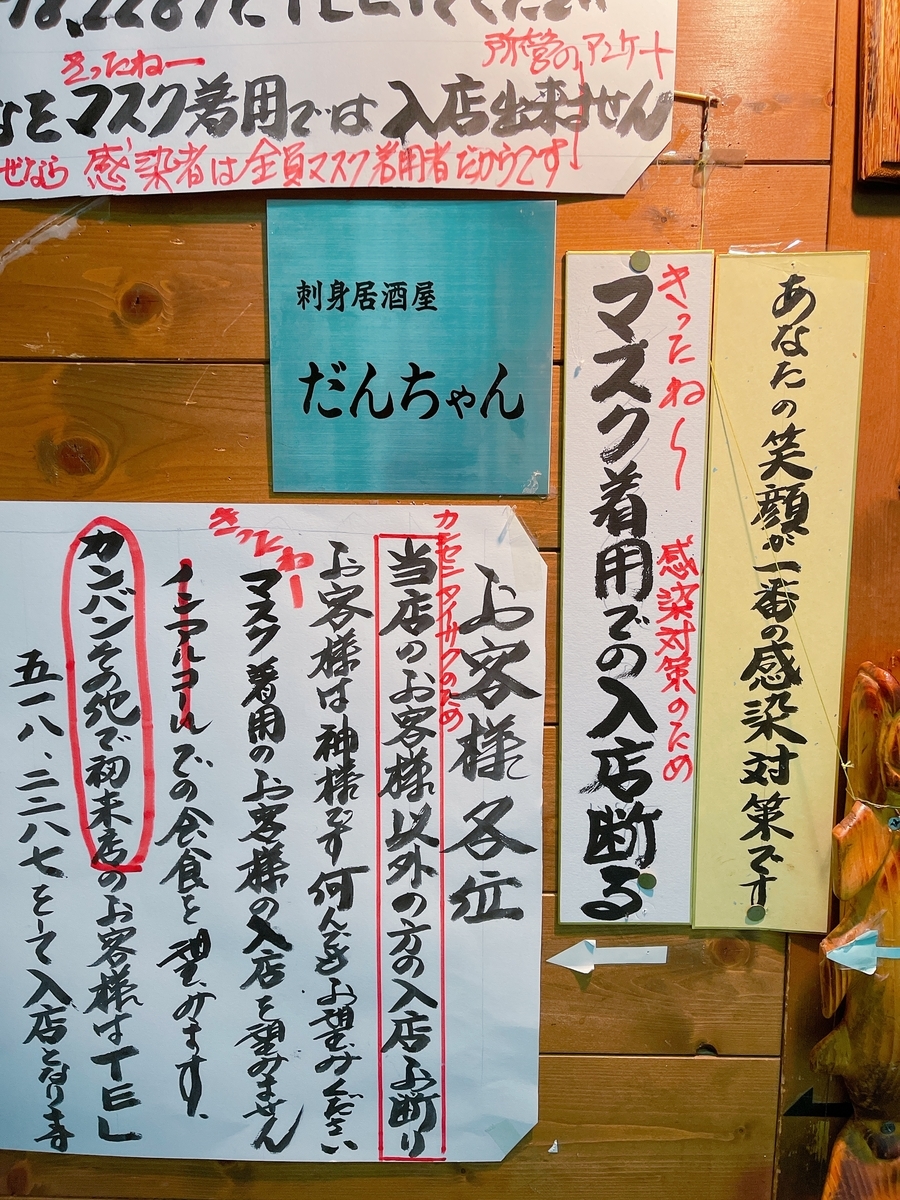 きったねー
所営のアンケート
なをマスク着用では入店出来ません
ぜなら 感染者は全員マスク着用者だからです
刺身居酒屋
だんちゃん
あなたの笑顔が一番の感染対策です
きったね〜 感染対策のため
マスク着用での入店断る
お客様各位
カンセンタイサクのため
当店のお客様以外の方の入店お断り
お客様は神様です何んでもお望みください
きったねー
マスク着用のお客様の入店を望みません
ノンアルコールでの会食を望みます、
カンバンその他で初来店のお客様はTEL
五一八、二二八七をして入店となります